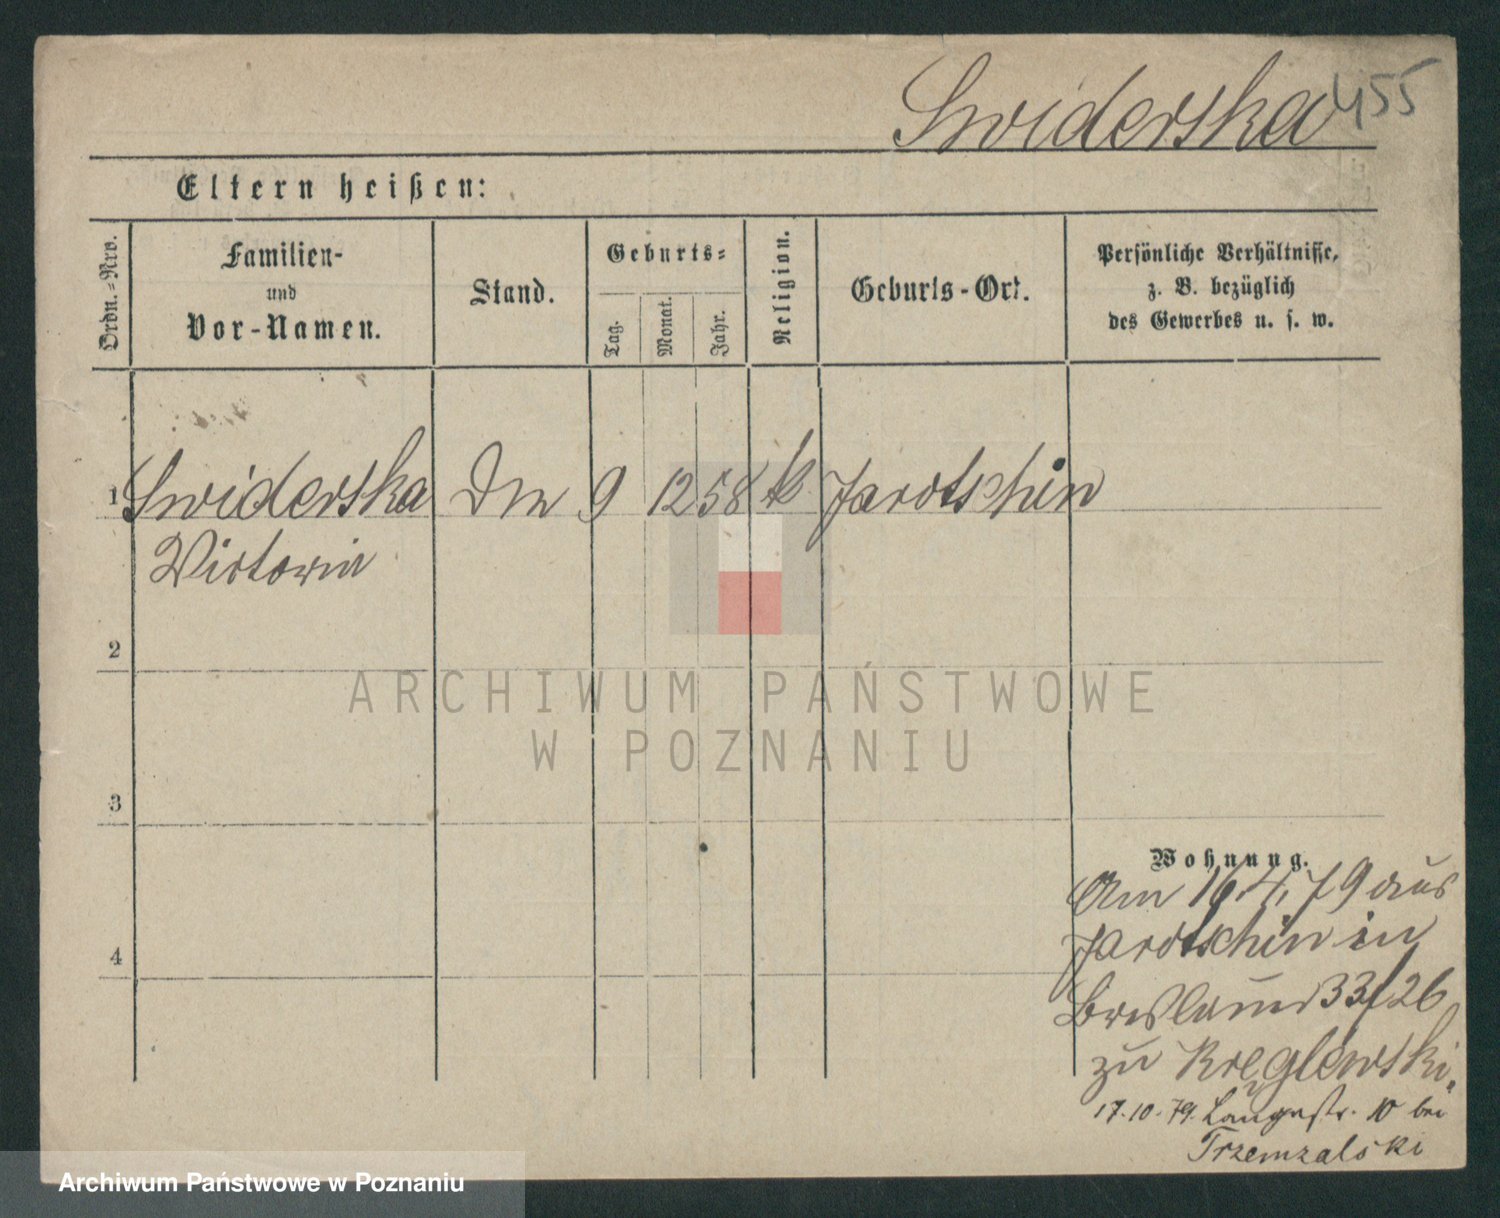 Swiderska 455
Eltern heißen:
Ordn.-Nro.
Familien-
und
Vor-Namen.
Stand.
Geburts-
Tag.
Monat.
Jahr.
Religion.
Geburts-Ort.
Persönliche Verhältnisse,
z. B. bezüglich
des Gewerbes u. s. w.
1 Swiderska 9 12 58 k Jarotschin
Victoria
2
3
4
Wohnung.
Am 16.4.79 aus
Jarotschin in
33/26
zu Kręglewski.
17.10.79. Langestr. 10 bei
Trzemzalski
ARCHIWUM PAŃSTWOWE
W POZNANIU
Archiwum Państwowe w Poznaniu